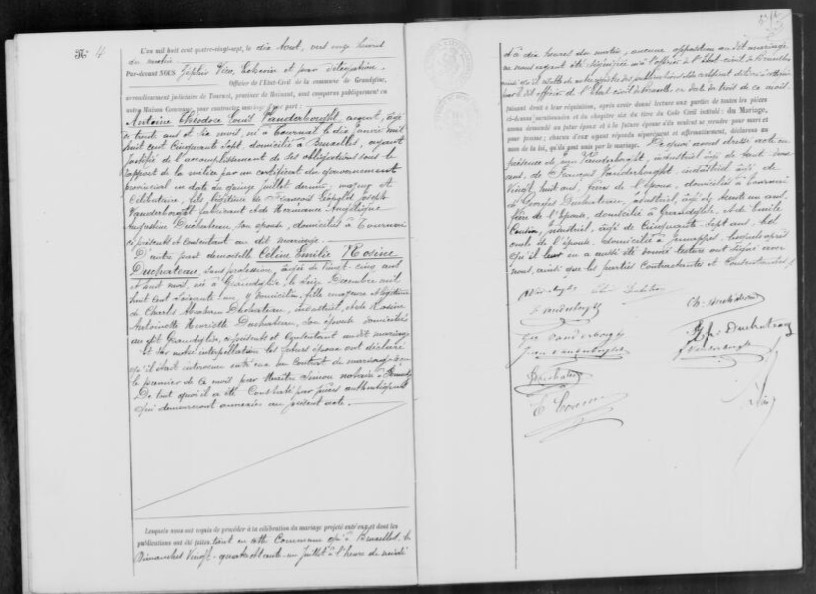 N° 4
L'an mil huit cent quatre-vingt-sept, le dix Août, vers onze heures
du matin
Par-devant NOUS Zéphir Vico, Echevin et pour délégation,
Officier de l'Etat-Civil de la commune de Grandglise,
arrondissement judiciaire de Tournai, province de Hainaut, sont comparus publiquement en
notre Maison Commune, pour contracter mariage d'une part :
Antoine Théodore Louis Vanderborght, agent, âgé
de trente ans et six mois, né à Tournai le dix Janvier mil
huit cent cinquante sept, domicilié à Bruxelles, ayant
justifié de l'accomplissement de ses obligations sous le
rapport de la milice par un certificat du gouvernement
provincial en date du quinze Juillet dernier, majeur et
célibataire, fils légitime de François Léopold Joseph
Vanderborght fabricant et de Hermance Angélique
Augustine Duchateau, son épouse, domiciliés à Tournai
ci présents et consentant au dit mariage.
D'autre part demoiselle Céline Emilie Rosine
Duchateau, sans profession, âgée de vingt-cinq ans
et huit mois, née à Grandglise, le seize Décembre mil
huit cent soixante un, y domiciliée, fille majeure et légitime
de Charles Abraham Duchateau, industriel, et de Rosine
Antoinette Henriette Duchateau, son épouse domiciliés
au dit Grandglise, ci présents et consentant au dit mariage
Et sur notre interpellation les futurs époux ont déclaré
qu'il était intervenu entre eux un contrat de mariage
le premier de ce mois par Maître Simon notaire à
De tout quoi il a été constaté par pièces authentiques
qui demeureront annexées au présent acte.
Lesquels nous ont requis de procéder à la célébration du mariage projeté entre eux, et dont les
publications ont été faites tant en cette Commune qu'à Bruxelles, les
Dimanches vingt-quatre et trente-un Juillet à l'heure de midi
à dix heures du matin, aucune opposition au dit mariage
ne nous ayant été signifiée ni à l'officier de l'Etat-civil de Bruxelles
par l'officier de l'Etat civil de Bruxelles en date du trois de ce mois.
faisant droit à leur réquisition, après avoir donné lecture aux parties de toutes les pièces
ci-dessus mentionnées et du chapitre six du titre du Code Civil intitulé : du Mariage,
avons demandé au futur époux et à la future épouse s'ils veulent se prendre pour mari et
pour femme ; chacun d'eux ayant répondu séparément et affirmativement, déclarons au
nom de la loi, qu'ils sont unis par le mariage. De quoi avons dressé acte en
présence de Vanderborght, industriel âgé de trente
ans, de François Vanderborght, industriel âgé de
vingt huit ans, frères de l'époux, domiciliés à Tournai
de Georges Duchateau, industriel, âgé de trente un ans,
frère de l'épouse, domicilié à Grandglise, et de Emile
Cousin, industriel, âgé de cinquante sept ans, bel
oncle de l'épouse, domicilié à Jemappes, lesquels après
qu'il leur en a aussi été donné lecture ont signé avec
nous, ainsi que les parties contractantes et consentantes.
Vanderborght
Ch. Duchateau
Vanderborght
Duchateau
Vanderborght
Vanderborght
Duchateau
E Cousin